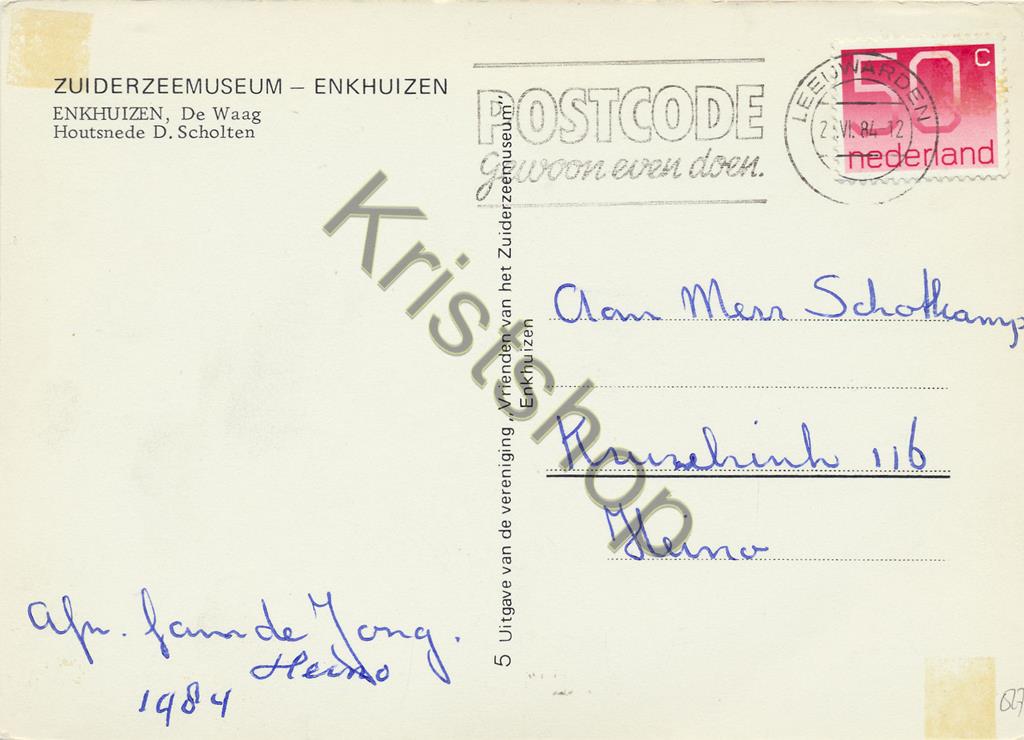 ZUIDERZEEMUSEUM – ENKHUIZEN
ENKHUIZEN, De Waag
Houtsnede D. Scholten
POSTCODE
gewoon even doen.
LEEUWARDEN
VI. 84 12
50 c
nederland
Kristshop
5 Uitgave van de vereniging „Vrienden van het Zuiderzeemuseum”
Enkhuizen
Aan Schotkamp
116
Heino
Afz. fam de Jong.
Heino
1984